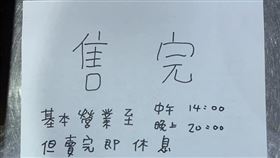 售完
基本營業至 中午 14:00
晚上 20:00
但賣完即休息